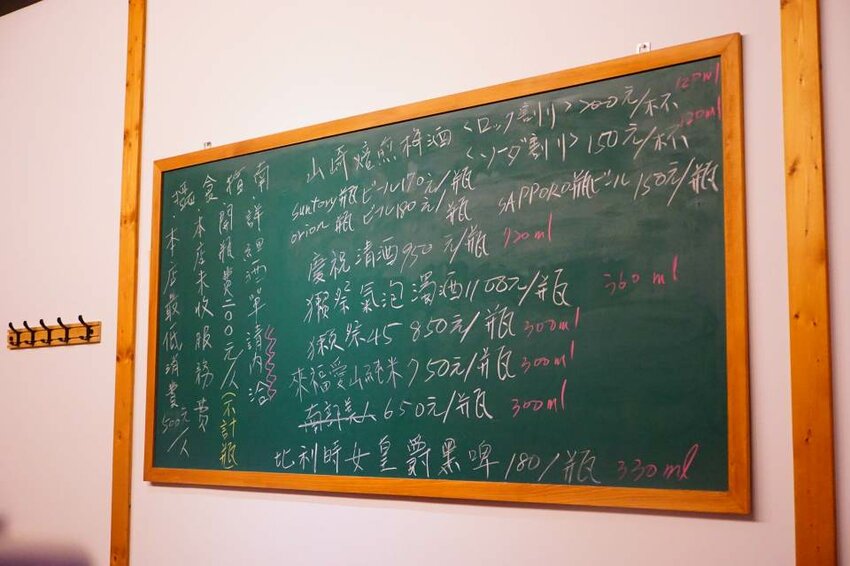 山崎焙煎梅酒 <ロック割り> 200元/杯 120ml
<ソーダ割り> 150元/杯 120ml
suntory瓶ビール170元/瓶 SAPPORO瓶ビール 150元/瓶
orion 瓶ビール180元/瓶
慶祝清酒950元/瓶 920ml
獺祭氣泡濁酒1100元/瓶 360ml
獺祭45 850元/瓶 300ml
來福愛山純米750元/瓶 300ml
南部美人650元/瓶 300ml
比利時女皇爵黑啤180/瓶 330ml
南
詳細酒單請內洽
積
開瓶費200元/人(不計瓶
倉
本店未收服務費
本店最低消費500元/人